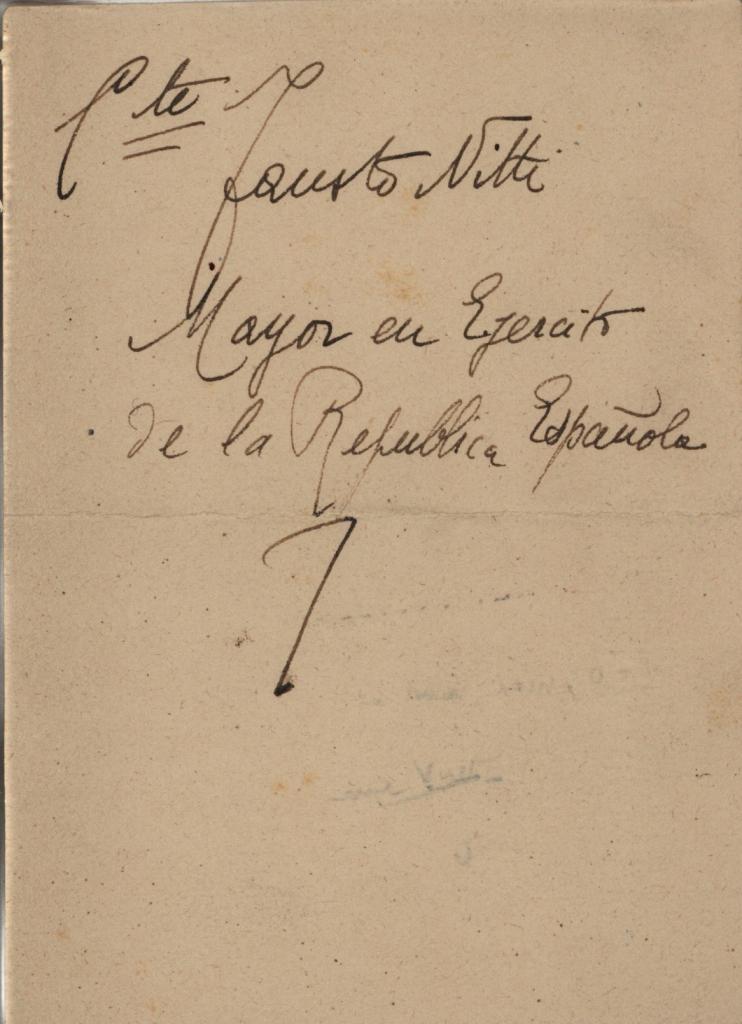 Cte Fausto Nitti
Mayor en Ejercito
de la Republica Española